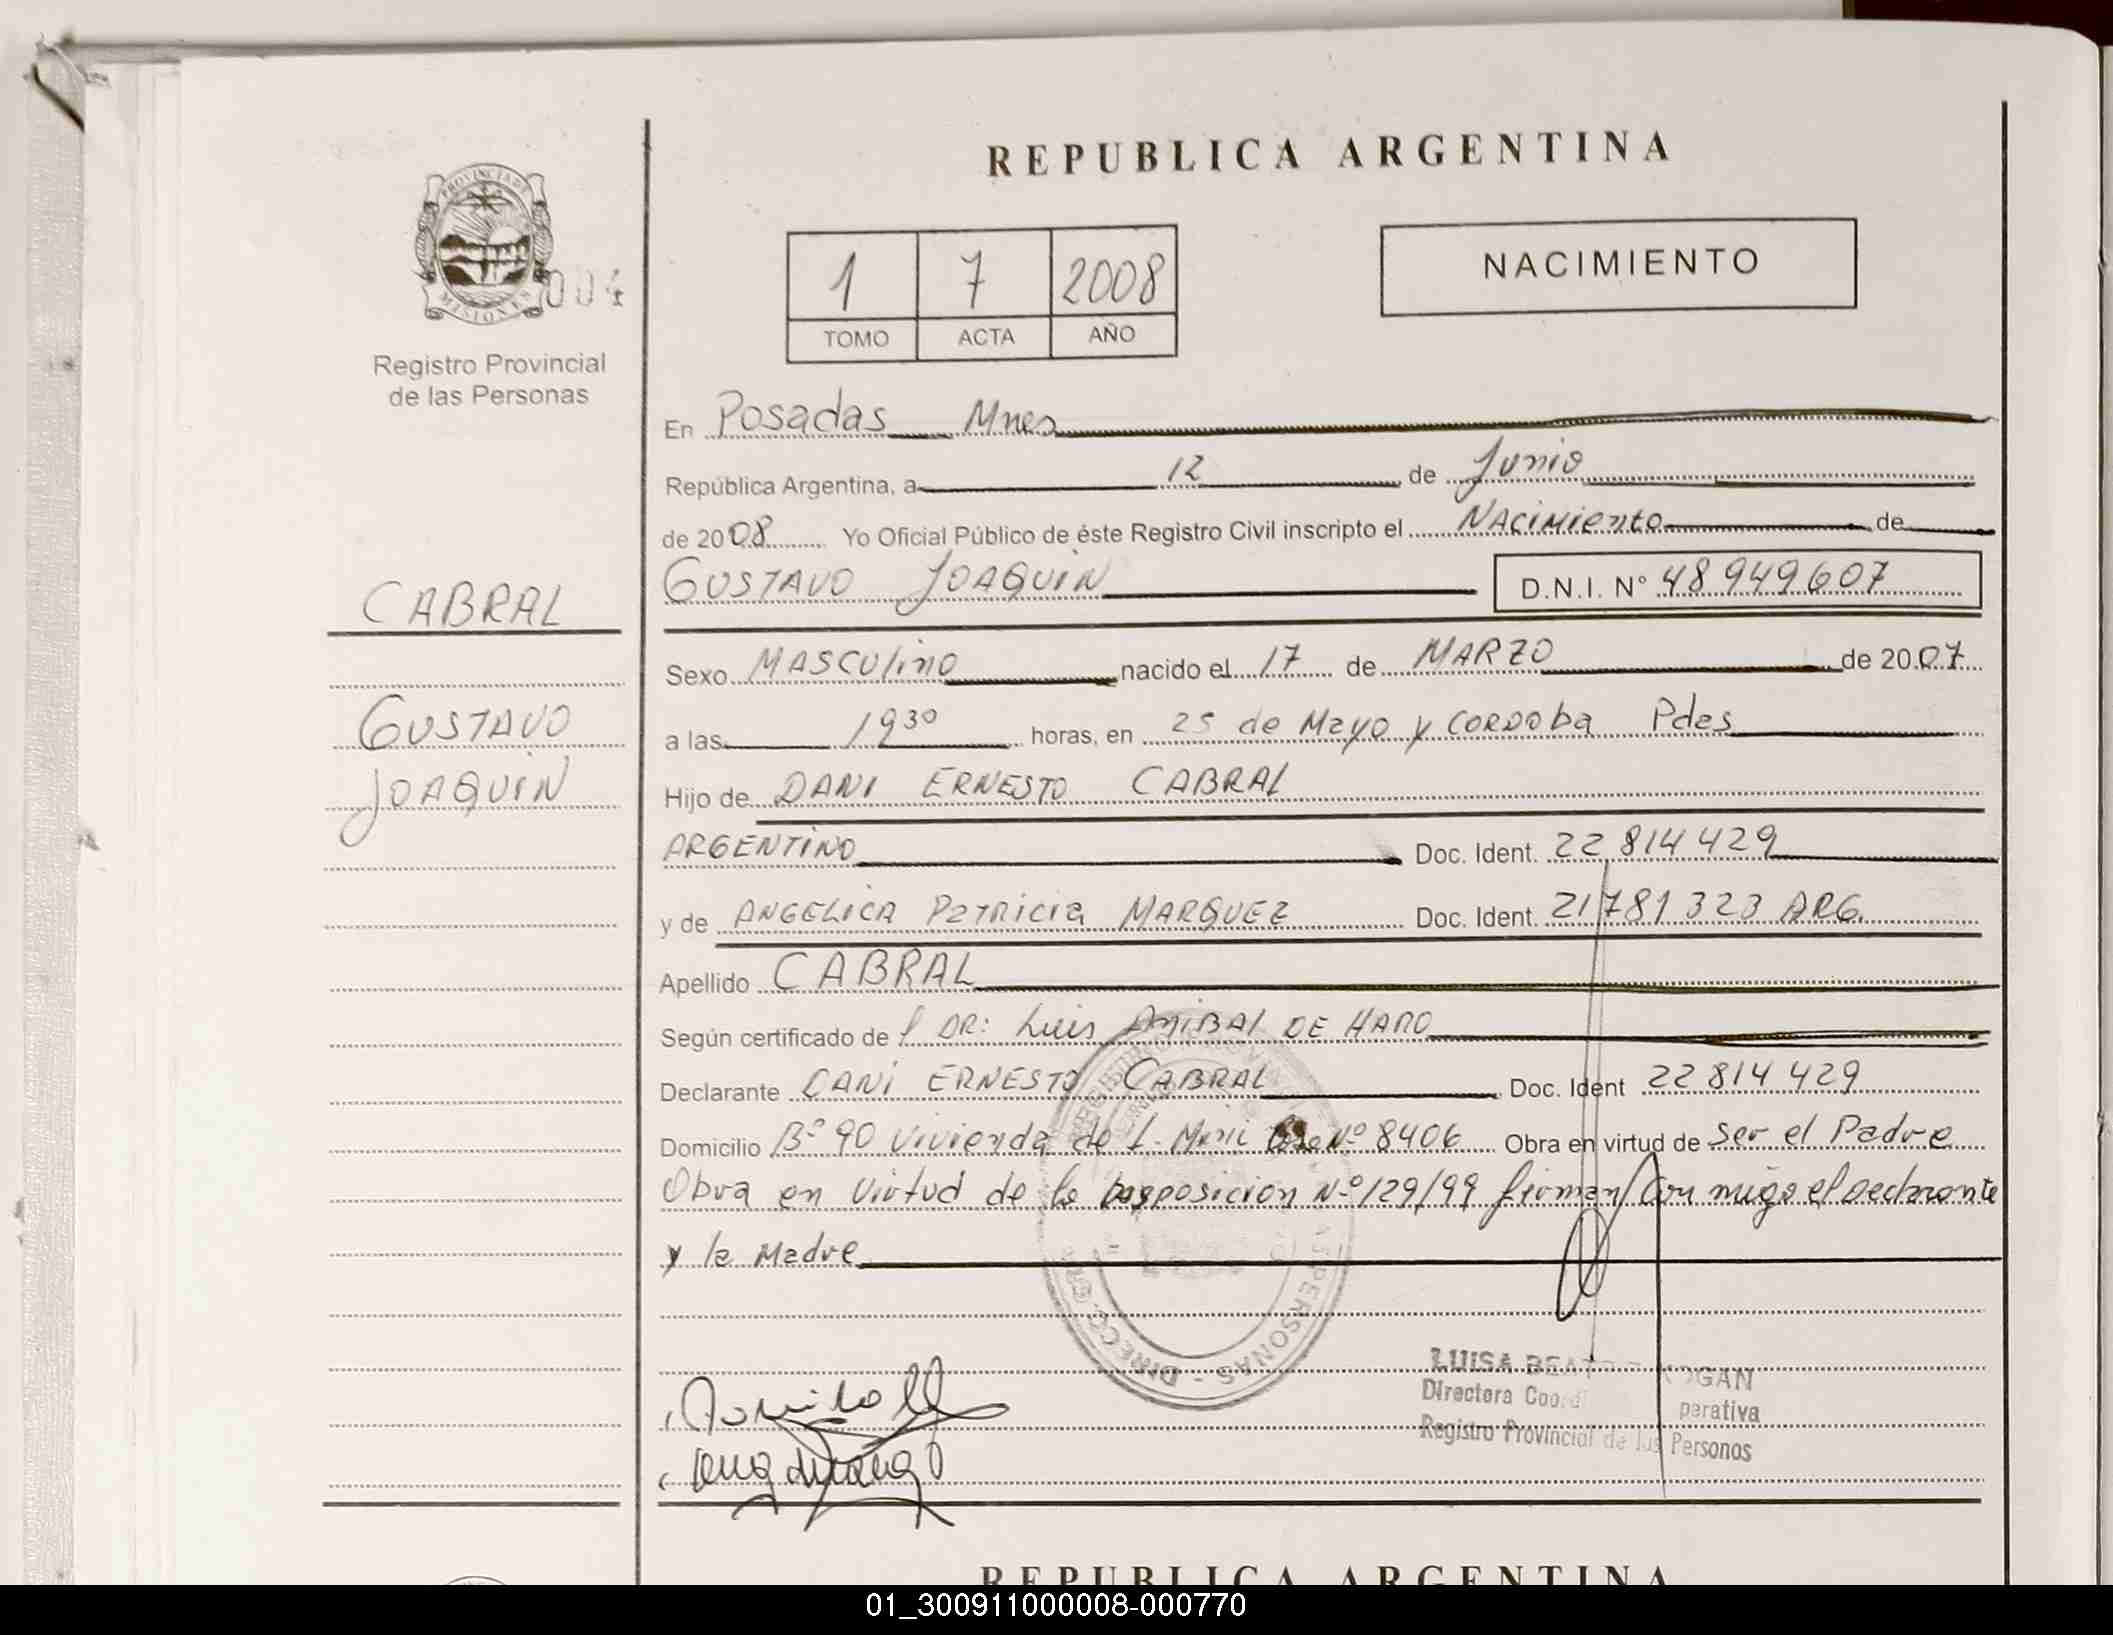 REPUBLICA ARGENTINA
PROVINCIA DE
MISIONES
004
Registro Provincial
de las Personas
1 7 2008
TOMO ACTA AÑO
NACIMIENTO
En Posadas Mnes
República Argentina, a 12 de Junio
de 2008 Yo Oficial Público de éste Registro Civil inscripto el Nacimiento de
GUSTAVO JOAQUIN D.N.I. N° 48949607
CABRAL
GUSTAVO
JOAQUIN
Sexo MASCULINO nacido el 17 de MARZO de 2007
a las 19 30 horas, en 25 de Mayo y CORDOBA Pdas
Hijo de DANI ERNESTO CABRAL
ARGENTINO Doc. Ident. 22 814 429
y de ANGELICA Patricia MARQUEZ Doc. Ident. 21 781 323 ARG.
Apellido CABRAL
Según certificado de l DR: Luis ANIBAL DE HARO
Declarante DANI ERNESTO CABRAL Doc. Ident 22 814 429
Domicilio B° 90 Vivienda de I. Mini N° 8406 Obra en virtud de ser el Padre
Obra en virtud de la Disposicion N° 129/99 firman con migo el Declarante
y la Madre
PERSONAS - DIRECC
LUISA KOGAN
Directora perativa
Registro Provincial de las Personas
REPUBLICA ARGENTINA
01_300911000008-000770